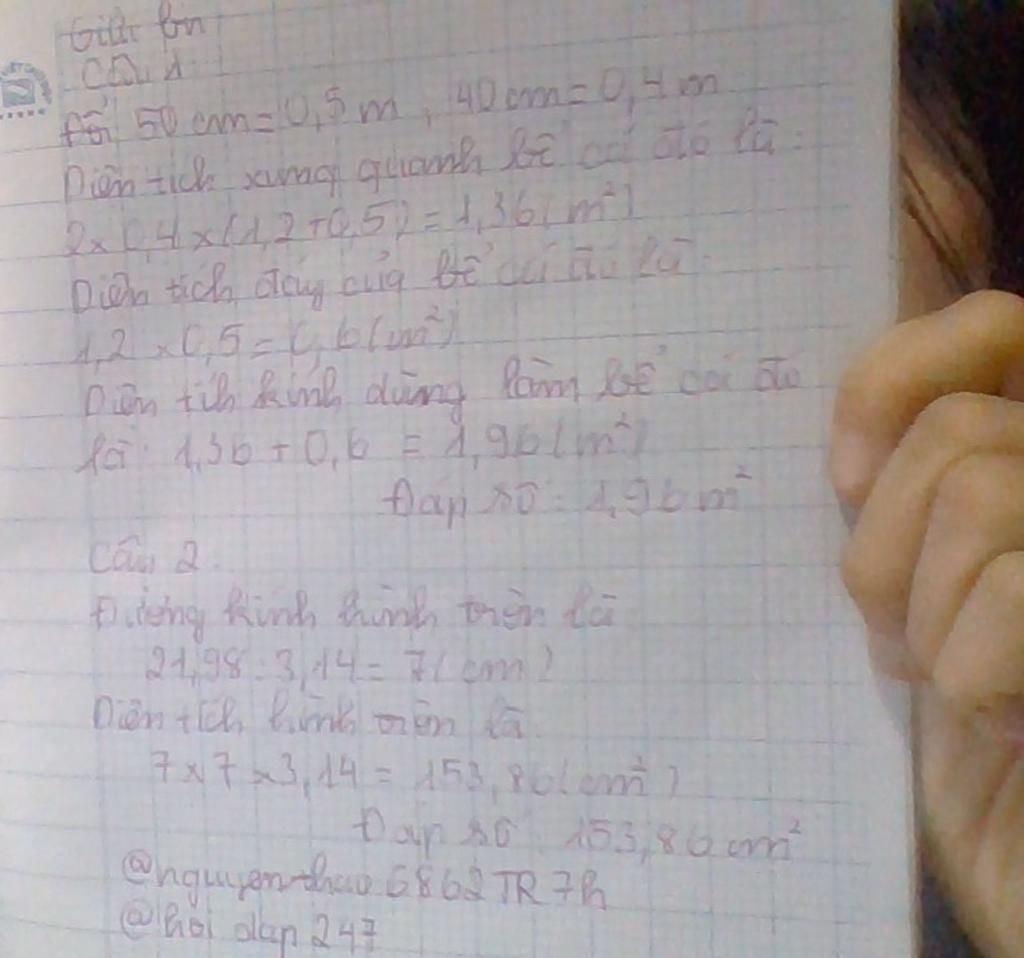 Giải
Câu 1
Đổi 50 cm = 0,5 m, 40 cm = 0,4 m
Diện tích xung quanh bể cá đó là:
2 x 0,4 x (1,2 + 0,5) = 1,36 (m²)
Diện tích đáy của bể cá đó là:
1,2 x 0,5 = 0,6 (m²)
Diện tích kính dùng làm bể cá đó
là: 1,36 + 0,6 = 1,96 (m²)
Đáp số: 1,96 m²
Câu 2
Đường kính hình tròn là
21,98 : 3,14 = 7 (cm)
Diện tích hình tròn là
7 x 7 x 3,14 = 153,86 (cm²)
Đáp số: 153,86 cm²
@nguyenthao6862TR7h
@hoi dap 247